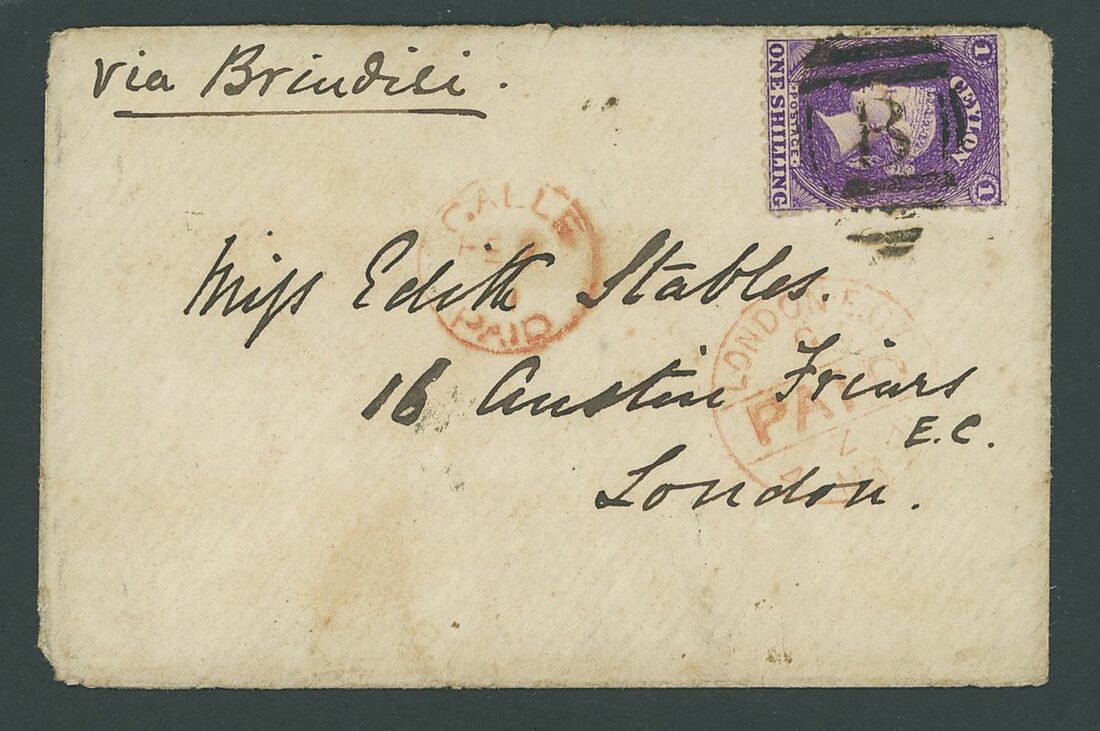 via Brindisi.
CEYLON
POSTAGE
ONE SHILLING
1
1
B
GALLE
FE
PAID
Miss Edith Stables.
16 Austin Friars
E.C.
London.
LONDON E.C.
PAID